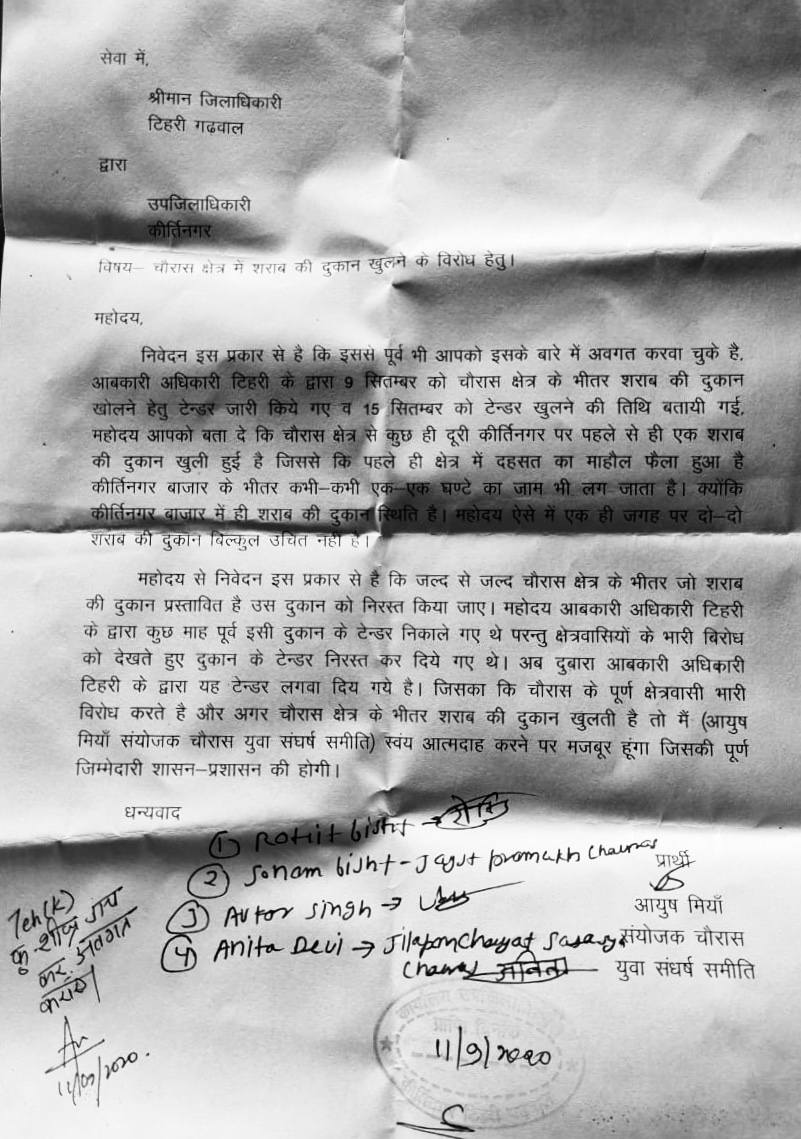 सेवा में,
श्रीमान जिलाधिकारी
टिहरी गढवाल
द्वारा
उपजिलाधिकारी
कीर्तिनगर
विषय– चौरास क्षेत्र में शराब की दुकान खुलने के विरोध हेतु।
महोदय,
निवेदन इस प्रकार से है कि इससे पूर्व भी आपको इसके बारे में अवगत करवा चुके है,
आबकारी अधिकारी टिहरी के द्वारा 9 सितम्बर को चौरास क्षेत्र के भीतर शराब की दुकान
खोलने हेतु टेन्डर जारी किये गए व 15 सितम्बर को टेन्डर खुलने की तिथि बतायी गई,
महोदय आपको बता दे कि चौरास क्षेत्र से कुछ ही दूरी कीर्तिनगर पर पहले से ही एक शराब
की दुकान खुली हुई है जिससे कि पहले ही क्षेत्र में दहसत का माहौल फैला हुआ है
कीर्तिनगर बाजार के भीतर कभी–कभी एक–एक घण्टे का जाम भी लग जाता है। क्योंकि
कीर्तिनगर बाजार में ही शराब की दुकान स्थिति है। महोदय ऐसे में एक ही जगह पर दो–दो
शराब की दुकान बिल्कुल उचित नहीं है।
महोदय से निवेदन इस प्रकार से है कि जल्द से जल्द चौरास क्षेत्र के भीतर जो शराब
की दुकान प्रस्तावित है उस दुकान को निरस्त किया जाए। महोदय आबकारी अधिकारी टिहरी
के द्वारा कुछ माह पूर्व इसी दुकान के टेन्डर निकाले गए थे परन्तु क्षेत्रवासियों के भारी बिरोध
को देखते हुए दुकान के टेन्डर निरस्त कर दिये गए थे। अब दुबारा आबकारी अधिकारी
टिहरी के द्वारा यह टेन्डर लगवा दिय गये है। जिसका कि चौरास के पूर्ण क्षेत्रवासी भारी
विरोध करते है और अगर चौरास क्षेत्र के भीतर शराब की दुकान खुलती है तो मैं (आयुष
मियाँ संयोजक चौरास युवा संघर्ष समीति) स्वंय आत्मदाह करने पर मजबूर हूंगा जिसकी पूर्ण
जिम्मेदारी शासन–प्रशासन की होगी।
धन्यवाद
① Rohit bisht →
② Sonam bisht - Jayst pramukh Chauras
प्रार्थी
③ Avtar Singh →
आयुष मियाँ
④ Anita Devi → Jilapanchayat Sadasya
संयोजक चौरास
Chauras अनिता
युवा संघर्ष समीति
Teh(K)
कृ. शीघ्र जांच
कर अवगत
करायें।
11/09/2020.
11/9/2020